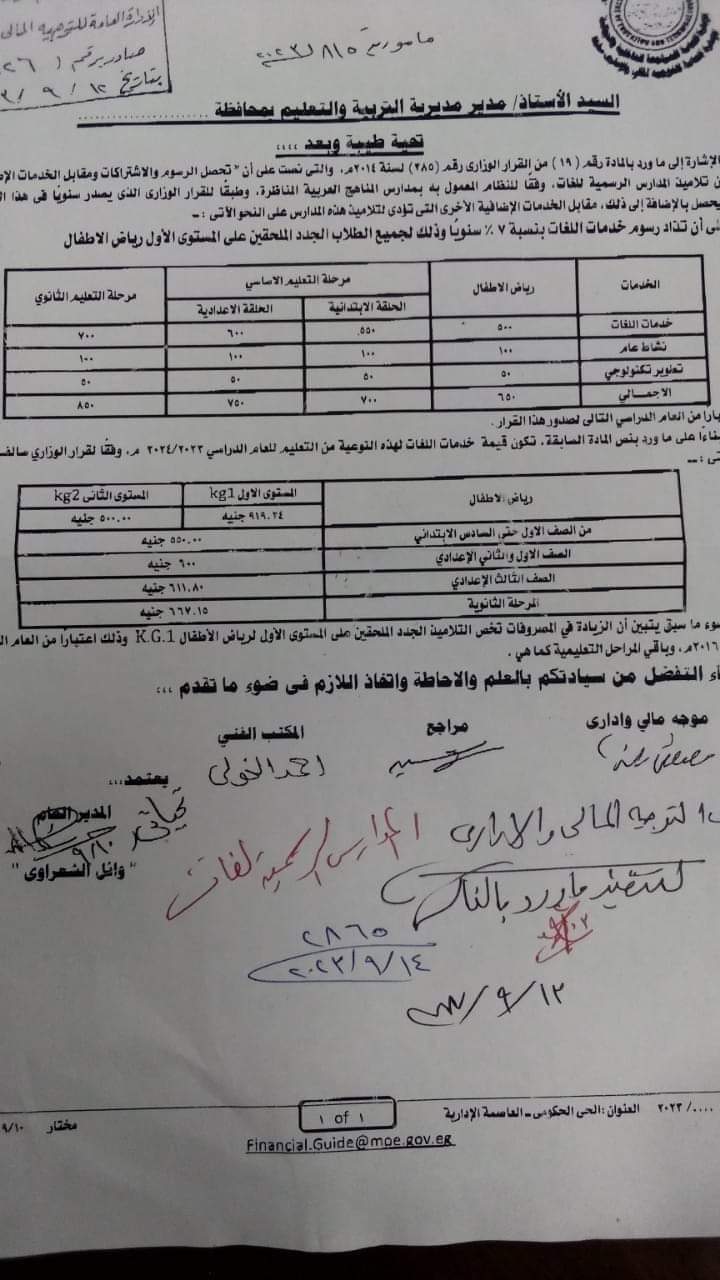 الإدارة العامة للتوجيه المالي
صادر برقم (٢٦
بتاريخ ١٢ / ٩ / ٣
مامورية ٨١٥
السيد الأستاذ/ مدير مديرية التربية والتعليم بمحافظة ......................
تحية طيبة وبعد ،،،،
الإشارة إلى ما ورد بالمادة رقم (١٩) من القرار الوزاري رقم (٢٨٥) لسنة ٢٠١٤م، والتي نصت على أن "تحصل الرسوم والاشتراكات ومقابل الخدمات الإض
ن تلاميذ المدارس الرسمية للغات، وفقًا للنظام المعمول به بمدارس المناهج العربية المناظرة، وطبقًا للقرار الوزارى الذى يصدر سنويًا فى هذا ال
يحصل بالإضافة إلى ذلك، مقابل الخدمات الإضافية الأخرى التى تؤدى لتلاميذ هذه المدارس على النحو الآتى :ــ
لى أن تذاد رسوم خدمات اللغات بنسبة ٧٪ سنويًا وذلك لجميع الطلاب الجدد الملحقين على المستوى الأول رياض الاطفال
الخدمات رياض الاطفال مرحلة التعليم الاساسي مرحلة التعليم الثانوي
الحلقة الابتدائية الحلقة الاعدادية
خدمات اللغات ٥٠٠ ٥٥٠ ٦٠٠ ٧٠٠
نشاط عام ١٠٠ ١٠٠ ١٠٠ ١٠٠
تطوير تكنولوجي ٥٠ ٥٠ ٥٠ ٥٠
الاجمـــالي ٦٥٠ ٧٠٠ ٧٥٠ ٨٥٠
بارا من العام الدراسي التالى لصدور هذا القرار .
ناءًا على ما ورد بنص المادة السابقة، تكون قيمة خدمات اللغات لهذه النوعية من التعليم للعام الدراسي ٢٠٢٤/٢٠٢٣ م، وفقًا لقرار الوزاري سالف
تى :ــ
رياض الاطفال المستوى الاول kg1 المستوى الثانى kg2
٩١٩.٢٤ جنيه ٥٠٠.٠٠ جنيه
من الصف الاول حتى السادس الابتدائي ٥٥٠.٠٠ جنيه
الصف الاول والثاني الإعدادي ٦٠٠ جنيه
الصف الثالث الإعدادي ٦١١.٨٠ جنيه
المرحلة الثانوية ٦٦٧.١٥ جنيه
وء ما سبق يتبين أن الزيادة في المصروفات تخص التلاميذ الجدد الملحقين على المستوى الأول لرياض الأطفال K.G.1 وذلك اعتبارًا من العام ال
٢٠١٦م، وباقي المراحل التعليمية كما هي .
اء التفضل من سيادتكم بالعلم والاحاطة واتفاذ اللازم فى ضوء ما تقدم ،،،
موجه مالي وادارى مراجع المكتب الفني
احمد الخولى
يعتمد...
المدير العام
٩/١٠
" وائل الشعراوى "
التوجيه المالى والادارى المدارس الرسمية لغات
لتنفيذ ما ورد بالكتاب
٢٨٦٥
٢٠٢٣/٩/١٤
٩/١٢
..../ ٢٠٢٣ العنوان : الحى الحكومى ــ العاصمة الإدارية ١ of ١ مختار ٩/١٠
Financial.Guide@moe.gov.eg